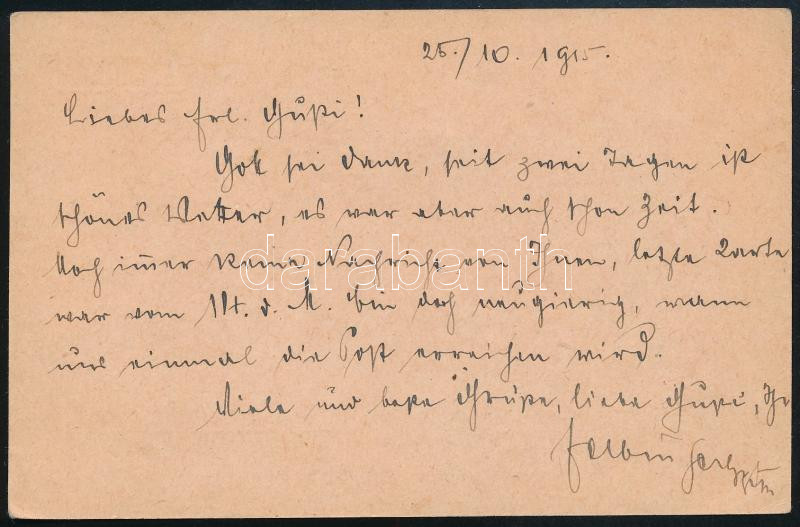 25./10. 1915.
Liebes Frl. Gusti!
Gott sei Dank, seit zwei Tagen ist
schönes Wetter, es war aber auch schon Zeit.
Noch immer keine Nachricht von Ihnen, letzte Karte
war vom 14. d. M. bin doch neugierig, wann
uns einmal die Post erreichen wird.
Viele und beste Grüße, liebe Gusti, Ihr
darabanth